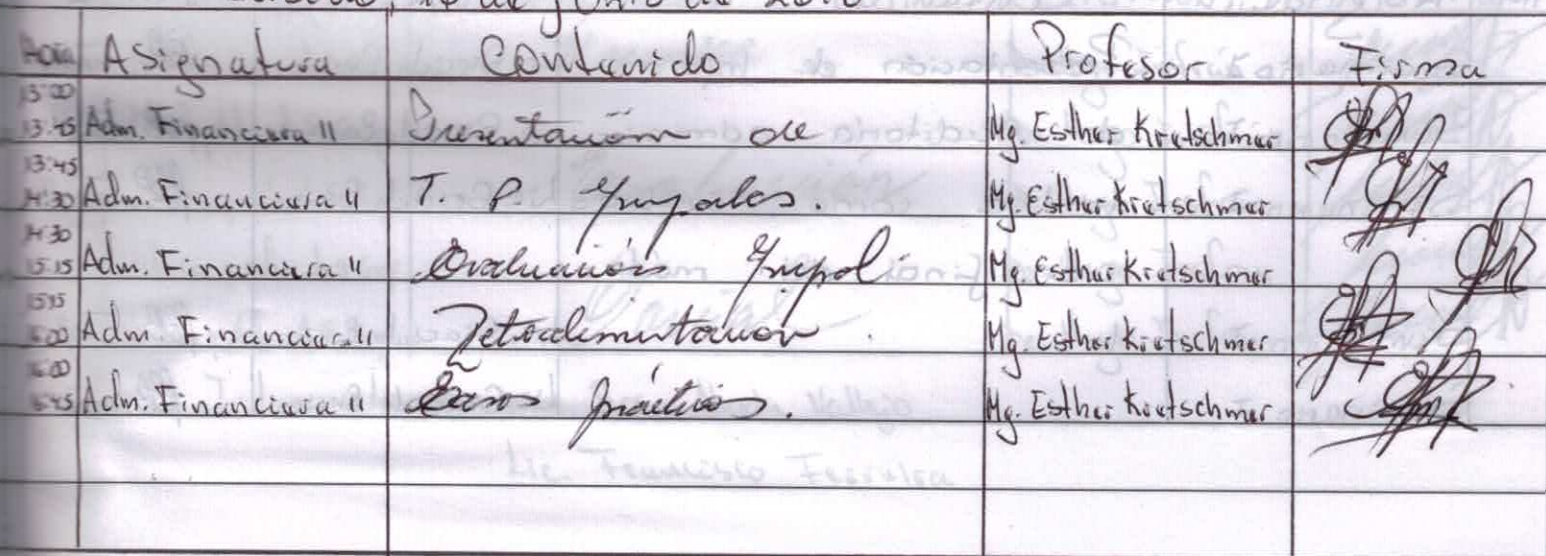 de Junio de
Hora Asignatura Contenido Profesor Firma
13:00
13:45 Adm. Financiera II Presentación de Mg. Esther Kretschmer
13:45
14:30 Adm. Financiera II T. P. Grupales. Mg. Esther Kretschmer
14:30
15:15 Adm. Financiera II Evaluación Grupal Mg. Esther Kretschmer
15:15
16:00 Adm. Financiera II Retroalimentación Mg. Esther Kretschmer
16:00
16:45 Adm. Financiera II Casos prácticos. Mg. Esther Kretschmer